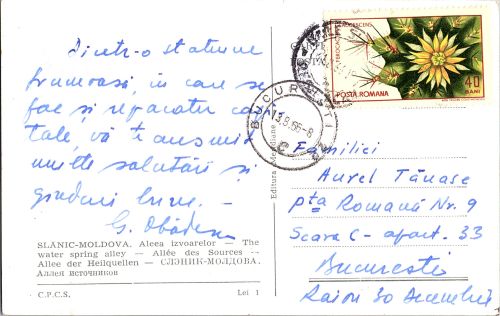 Dintr-o stațiune
frumoasă, în care se
fac și reparații capi-
tale, vă transmit
multe salutări și
gânduri bune. -
G.
SLANIC-MOLDOVA. Aleea izvoarelor — The
water spring alley — Allée des Sources —
Allee der Heilquellen — СЛЭНИК-МОЛДОВА.
Аллея источников
C.P.C.S.
Lei 1
Editura Meridiane
POSTA ROMANA
40
BANI
BUCUREȘTI
13.9.66-8
Familiei
Aurel Tănase
pța Romană Nr. 9
Scara C - apart. 33
București
Raion 30 Decembrie